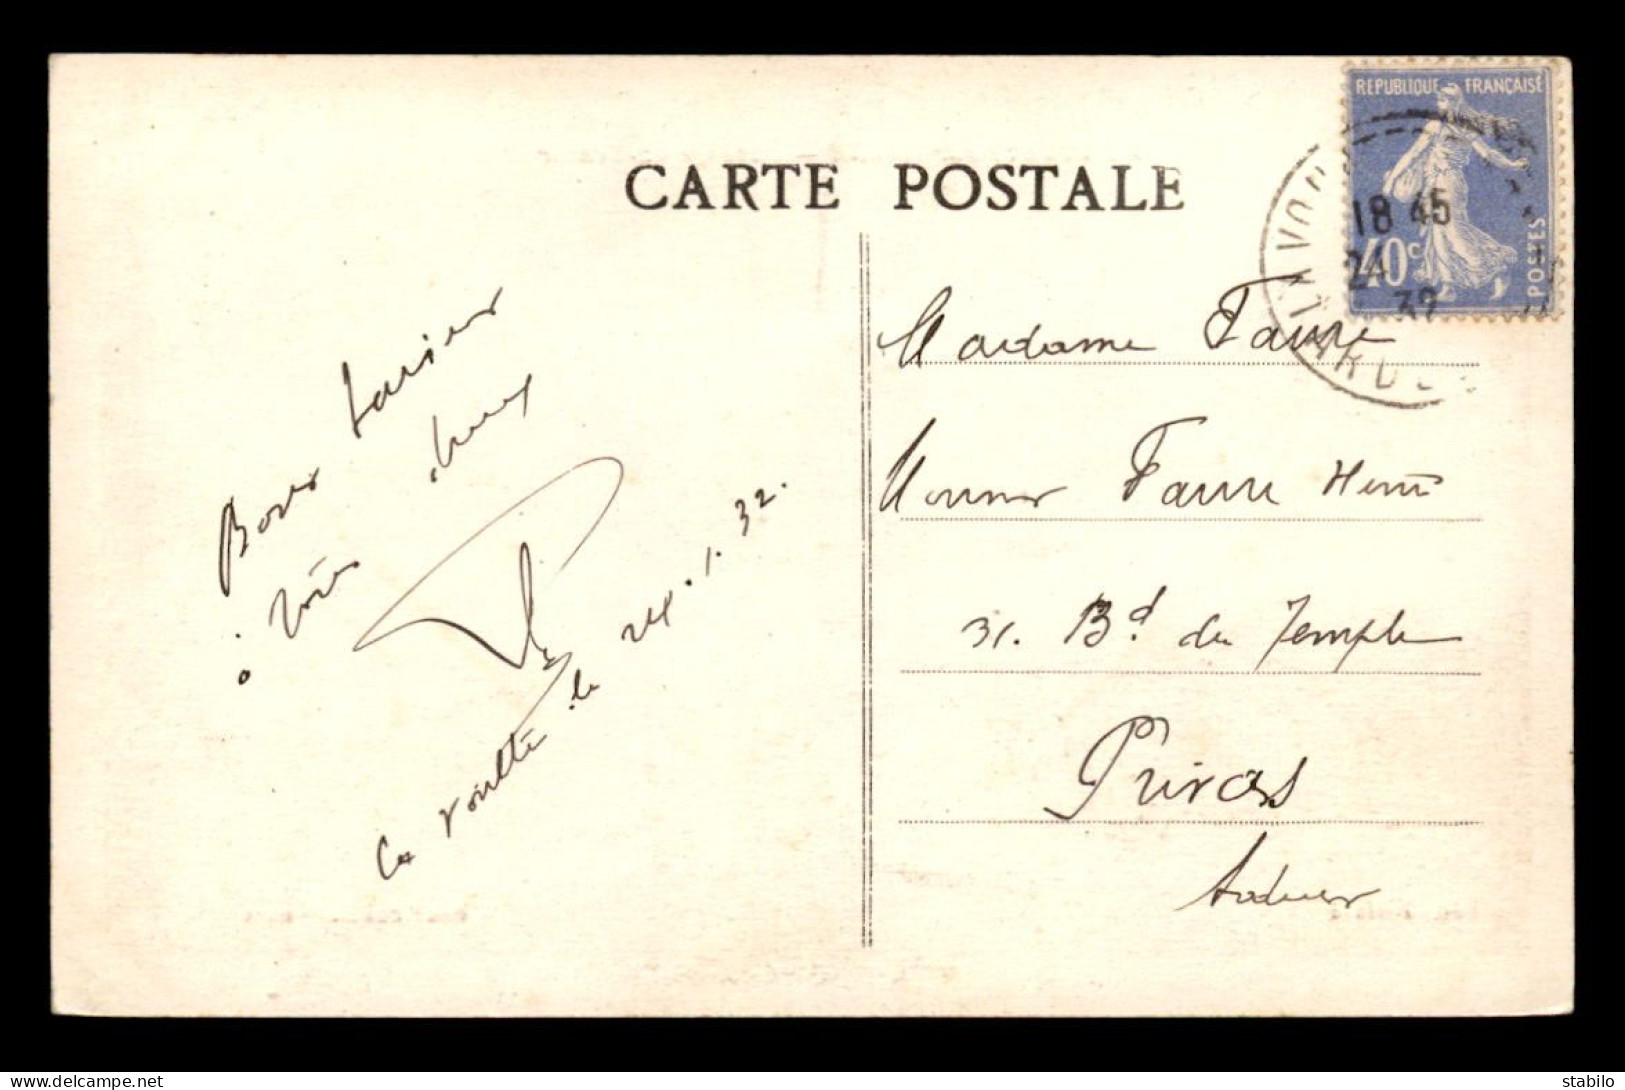 CARTE POSTALE
REPUBLIQUE FRANÇAISE
40c
POSTES
18 45
24
32
Bons baisers
à vous deux
La Voulte le 24.1.32.
Madame Faure
Monsieur Faure Henri
31. Bd du Temple
Privas
Ardèche
delcampe.net
stabilo